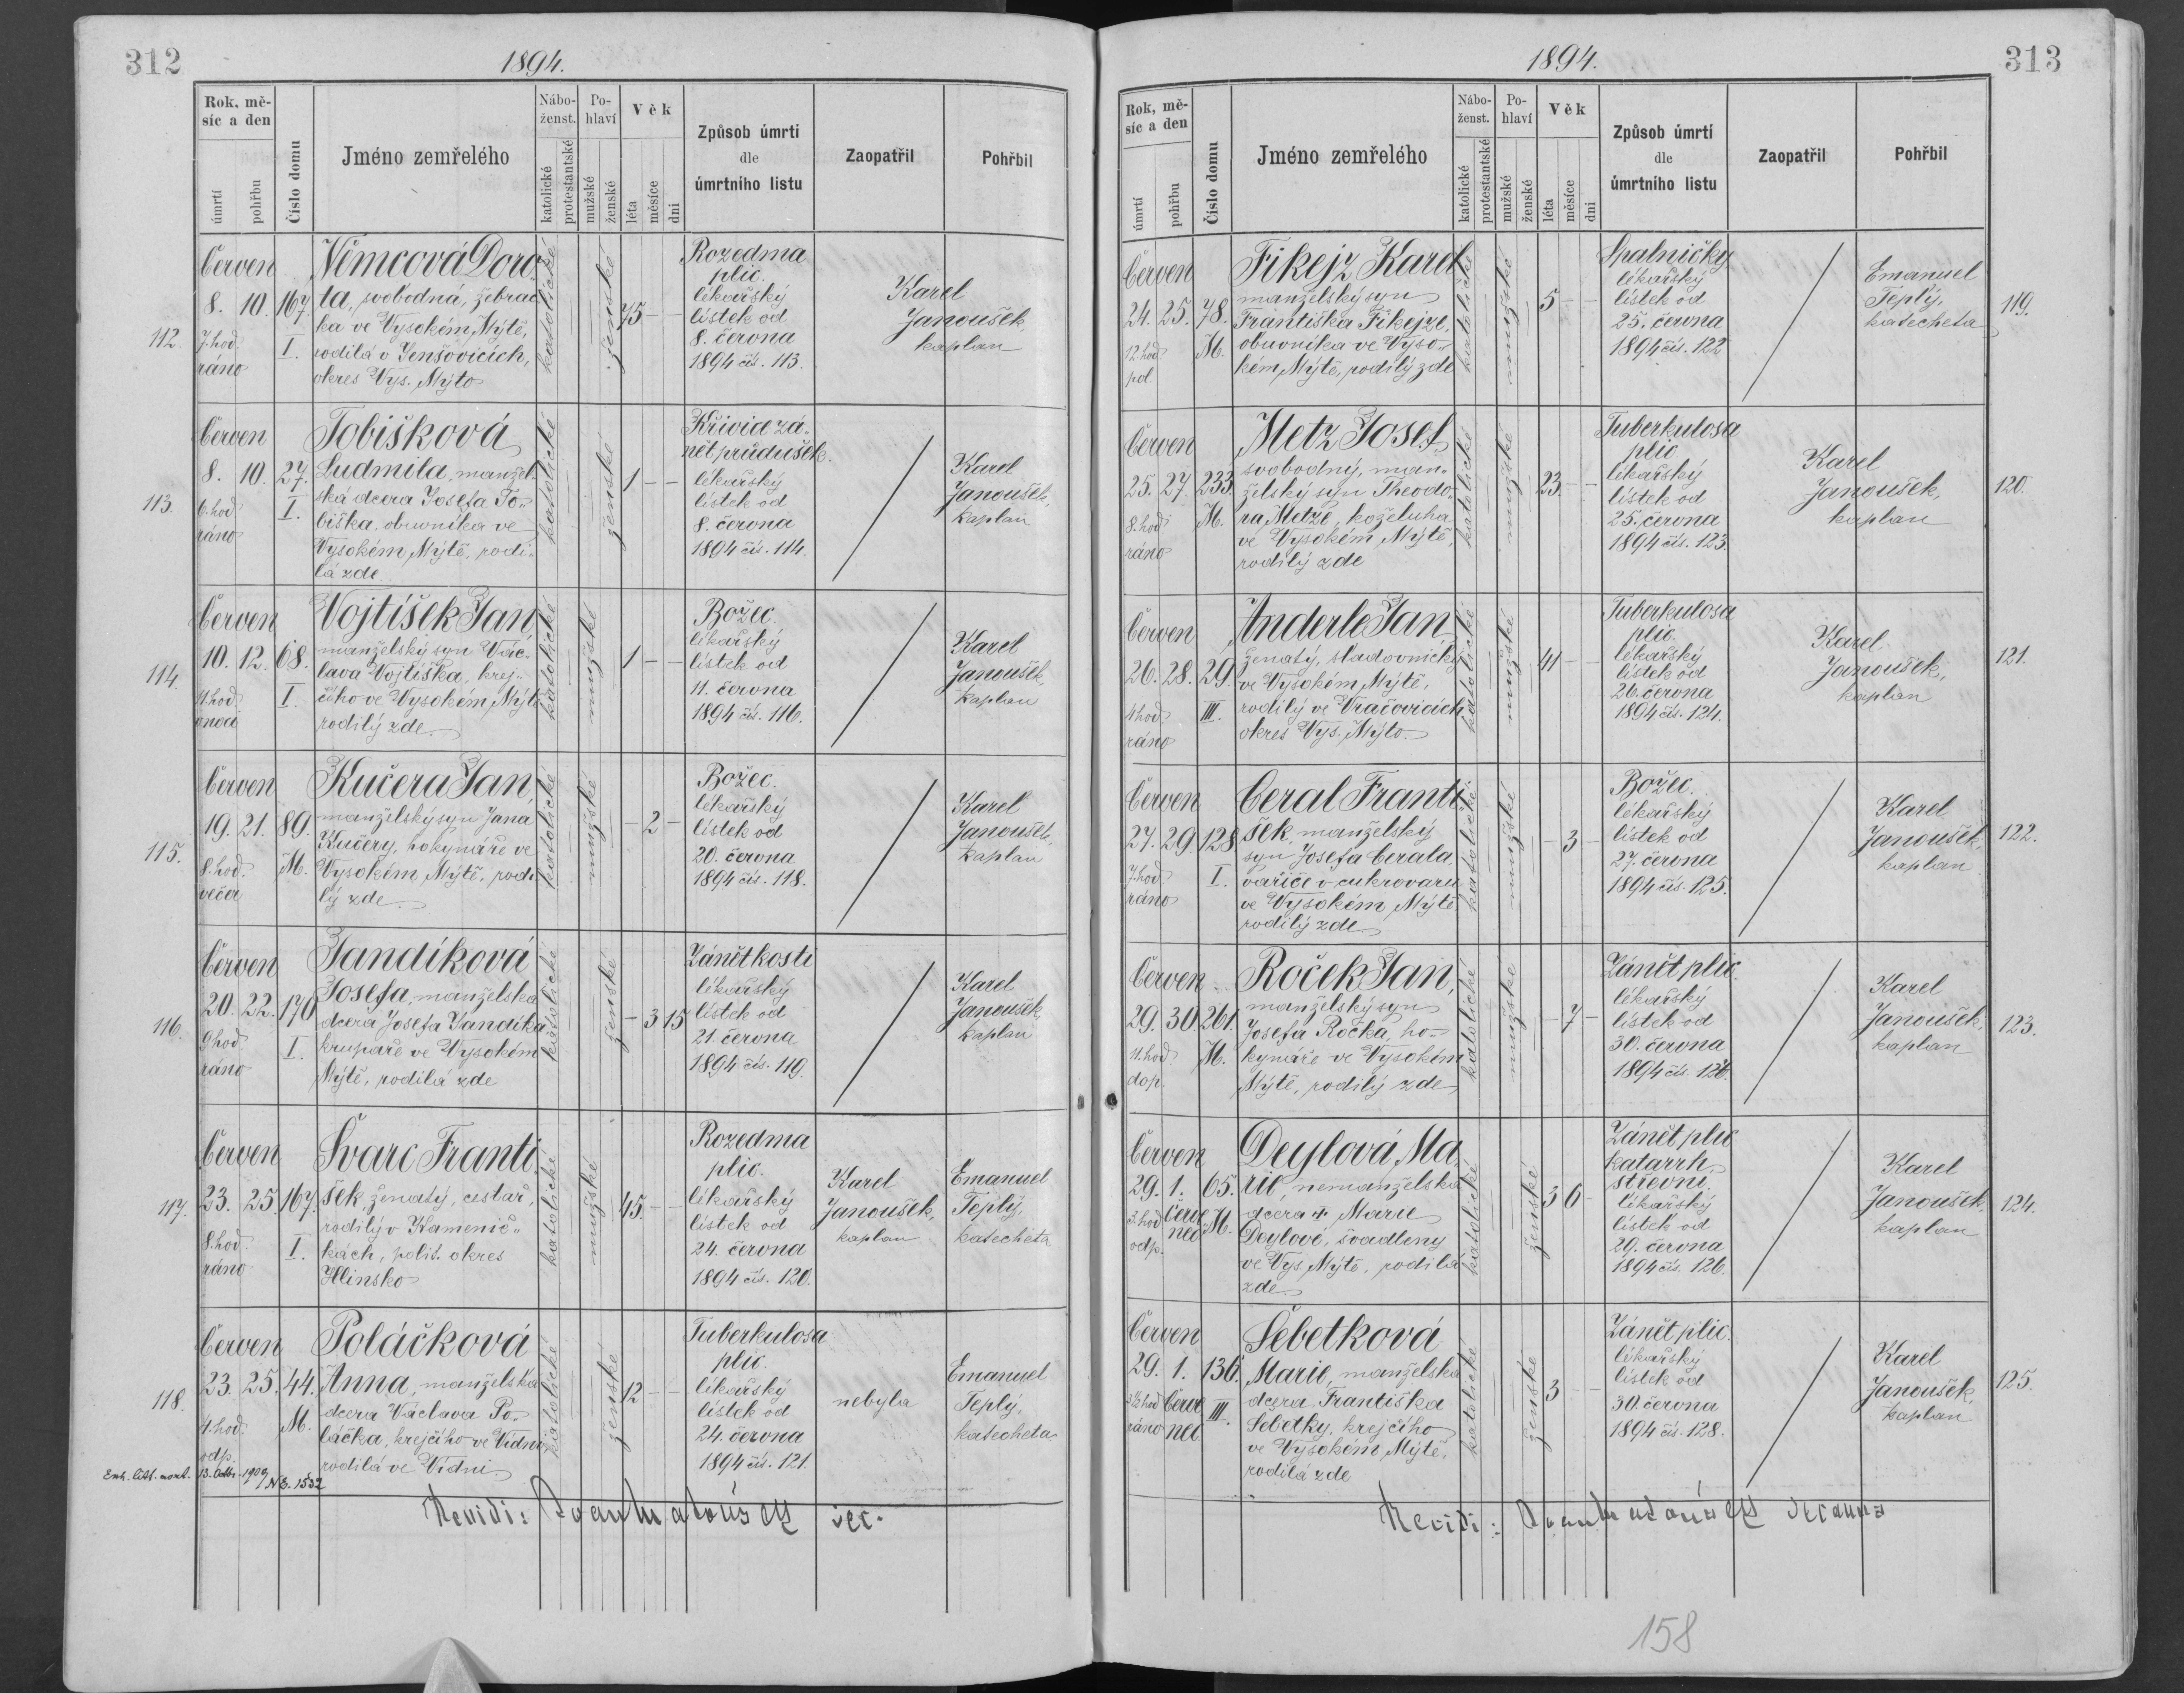 312
1894.
Rok, mě-
síc a den
úmrtí
pohřbu
Číslo domu
Jméno zemřelého
Nábo-
ženst.
katolické
protestantské
Po-
hlaví
mužské
ženské
Věk
léta
měsíce
dni
Způsob úmrtí
dle
úmrtního listu
Zaopatřil
Pohřbil
112.
Červen
8. 10. 167
7. hod.
ráno
I.
Němcová Doro-
ta, svobodná, žebrač-
ka ve Vysokém Mýtě,
rodilá v Jenšovicích,
okres Vys. Mýto
katolické
ženské
75 – –
Rozedma
plic.
lékařský
lístek od
8. června
1894 čís. 113.
Karel
Janoušek,
kaplan
113.
Červen
8. 10. 27.
6. hod.
ráno
I.
Tobišková
Ludmila, manžel-
ská dcera Josefa To-
biška, obuvníka ve
Vysokém Mýtě, rodi-
lá zde.
katolické
ženské
1 – –
Křivice zá-
nět průdušek.
lékařský
lístek od
8. června
1894 čís. 114.
Karel
Janoušek,
kaplan
114.
Červen
10. 12. 68.
11. hod.
v noci
I.
Vojtíšek Jan,
manželský syn Vác-
lava Vojtíška, krej-
čího ve Vysokém Mýtě
rodilý zde.
katolické
mužské
1 – –
Božec.
lékařský
lístek od
11. června
1894 čís. 116.
Karel
Janoušek,
kaplan
115.
Červen
19. 21. 89.
8. hod.
večer
M.
Kučera Jan,
manželský syn Jana
Kučery, hokynáře ve
Vysokém Mýtě, rodi-
lý zde.
katolické
mužské
– 2 –
Božec.
lékařský
lístek od
20. června
1894 čís. 118.
Karel
Janoušek,
kaplan
116.
Červen
20. 22. 170
9 hod.
ráno
I.
Jandíková
Josefa, manželská
dcera Josefa Jandíka
krupaře ve Vysokém
Mýtě, rodilá zde
katolické
ženské
– 3 15
Zánět kosti
lékařský
lístek od
21. června
1894 čís. 119.
Karel
Janoušek,
kaplan
117.
Červen
23. 25. 167.
8. hod.
ráno
I.
Švarc Franti-
šek, ženatý, cestář,
rodilý v Kamenič-
kách, polit. okres
Hlinsko
katolické
mužské
45. – –
Rozedma
plic.
lékařský
lístek od
24. června
1894 čís. 120.
Karel
Janoušek,
kaplan
Emanuel
Teplý,
katecheta
118.
Červen
23. 25. 44.
4. hod.
odp.
M.
Poláčková
Anna, manželská
dcera Václava Po-
láčka, krejčího ve Vídni
rodilá ve Vídni.
katolické
ženské
12 – –
Tuberkulosa
plic.
lékařský
lístek od
24. června
1894 čís. 121.
nebyla
Emanuel
Teplý,
katecheta.
13. 1909 NE. 1532
Revidi:
313
1894.
Rok, mě-
síc a den
úmrtí
pohřbu
Číslo domu
Jméno zemřelého
Nábo-
ženst.
katolické
protestantské
Po-
hlaví
mužské
ženské
Věk
léta
měsíce
dni
Způsob úmrtí
dle
úmrtního listu
Zaopatřil
Pohřbil
Červen
24. 25. 78.
12. hod.
pol.
M.
Fikejz Karel
manželský syn
Františka Fikejze,
obuvníka ve Vyso-
kém Mýtě, rodilý zde
katolické
mužské
5 – –
Spalničky
lékařský
lístek od
25. června
1894 čís. 122
Emanuel
Teplý,
katecheta
119.
Červen
25. 27. 233.
8. hod.
ráno
M.
Metz Josef
svobodný, man-
želský syn Theodo-
ra Metze, koželuha
ve Vysokém Mýtě,
rodilý zde
katolické
mužské
23. – –
Tuberkulosa
plic
lékařský
lístek od
25. června
1894 čís. 123.
Karel
Janoušek,
kaplan
120.
Červen
26. 28. 29.
4 hod.
ráno
III.
Anderle Jan
ženatý, sladovnický
ve Vysokém Mýtě,
rodilý ve Vračovicích
okres Vys. Mýto.
katolické
mužské
41 – –
Tuberkulosa
plic.
lékařský
lístek od
26. června
1894 čís. 124.
Karel
Janoušek,
kaplan
121.
Červen
27. 29. 128
7. hod.
ráno
I.
Ceral Franti-
šek, manželský
syn Josefa Cerala,
vařiče v cukrovaru
ve Vysokém Mýtě
rodilý zde.
katolické
mužské
– 3 –
Božec.
lékařský
lístek od
27. června
1894 čís. 125.
Karel
Janoušek,
kaplan
122.
Červen
29. 30. 261.
11. hod.
dop.
M.
Roček Jan,
manželský syn
Josefa Ročka, ho-
kynáře ve Vysokém
Mýtě, rodilý zde
katolické
mužské
– 7 –
Zánět plic.
lékařský
lístek od
30. června
Karel
Janoušek,
kaplan
123.
Červen
29. 1. 65.
3. hod.
odp.
Červe
nec
M.
Deylová Ma-
rie, nemanželská
dcera † Marie
Deylové, švadleny
ve Vys. Mýtě, rodilá
zde
katolické
ženské
3 6 –
Zánět plic
katarrh
střevní.
lékařský
lístek od
29. června
1894 čís. 126.
Karel
Janoušek,
kaplan
124.
Červen
29. 1. 136.
ráno
Červe
nec
III.
Šebetková
Marie, manželská
dcera Františka
Šebetky, krejčího
ve Vysokém Mýtě,
rodilá zde
katolické
ženské
3 – –
Zánět plic.
lékařský
lístek od
30. června
1894 čís. 128.
Karel
Janoušek,
kaplan
125.
Revidi:
158